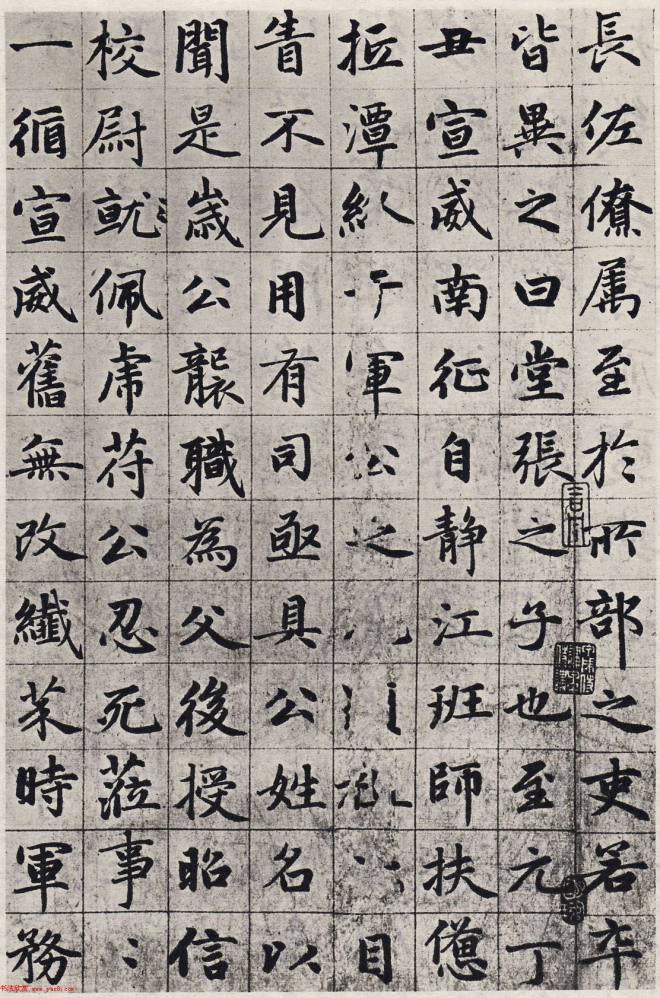 長佐僚属至於所部之吏若卒
皆異之曰堂張之子也至元丁
丑宣威南征自静江班師扶憊
抵潭于軍公之目
眚不見用有司亟具公姓名以
聞是歲公襲職為父後授昭信
校尉就佩虎符公忍死蒞事〻
一循宣威舊無改纖芥時軍務
书法欣赏 www.yac8.com